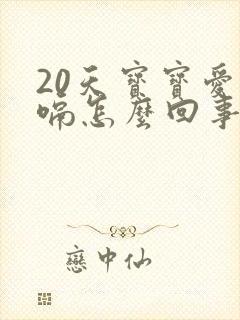 20天寶寶愛
嗝怎麼回事
戀中仙